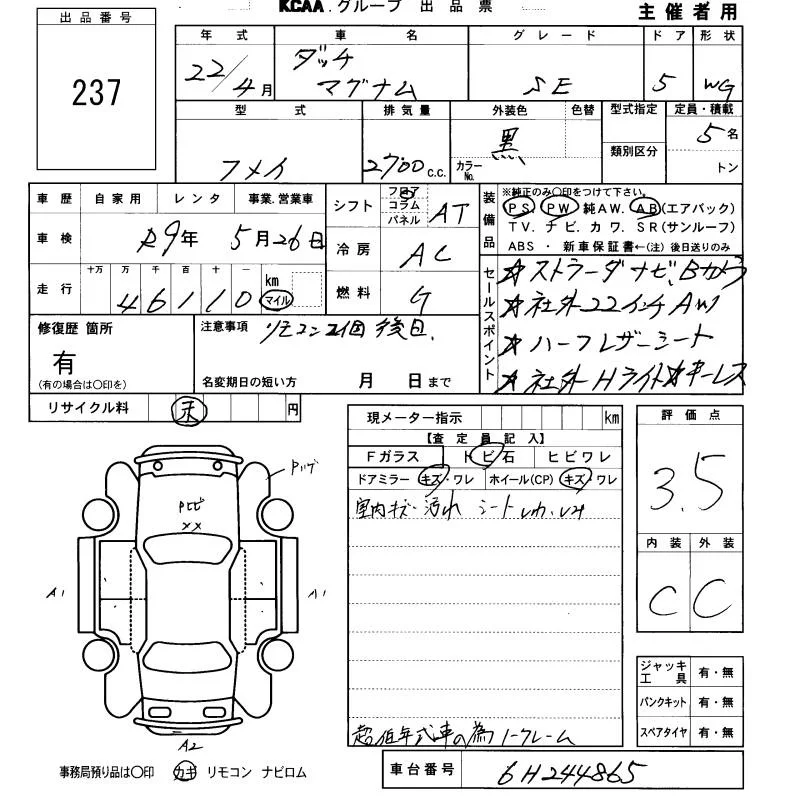 KCAA.グループ 出品票
主催者用
出品番号
237
年式 車名 グレード ドア 形状
22/4月 ダッチ マグナム SE 5 WG
型式 排気量 外装色 色替 型式指定 定員・積載
フメイ 2700 c.c. 黒 カラーNo. 類別区分 5名
トン
車歴 自家用 レンタ 事業.営業車
車検 R9年 5月26日
走行 十万 万 千 百 十 一 km マイル
46110
シフト フロア コラム パネル AT
冷房 AC
燃料 G
装備品 ※純正のみ〇印をつけて下さい。
PS PW 純AW. AB(エアバック)
TV. ナビ. カワ. SR(サンルーフ)
ABS ・ 新車保証書←(注) 後日送りのみ
セールスポイント
☆ストラーダナビ、Bカメラ
☆社外22インチAW
☆ハーフレザーシート
☆社外Hライト☆キーレス
修復歴 箇所
有
(有の場合は〇印を)
注意事項 リモコン2個後日.
名変期日の短い方 月 日まで
リサイクル料 未 円
現メーター指示 km
【査定員記入】
Fガラス トビ石 ヒビワレ
ドアミラー キズ・ワレ ホイール(CP) キズ・ワレ
室内キズ・汚れ シート
超低年式車の為ノークレーム
評価点
3.5
内装 外装
C C
ジャッキ工具 有・無
パンクキット 有・無
スペアタイヤ 有・無
Pハゲ
Pトビ
××
A1
A1
A2
事務局預り品は〇印 カギ リモコン ナビロム
車台番号 6H244865